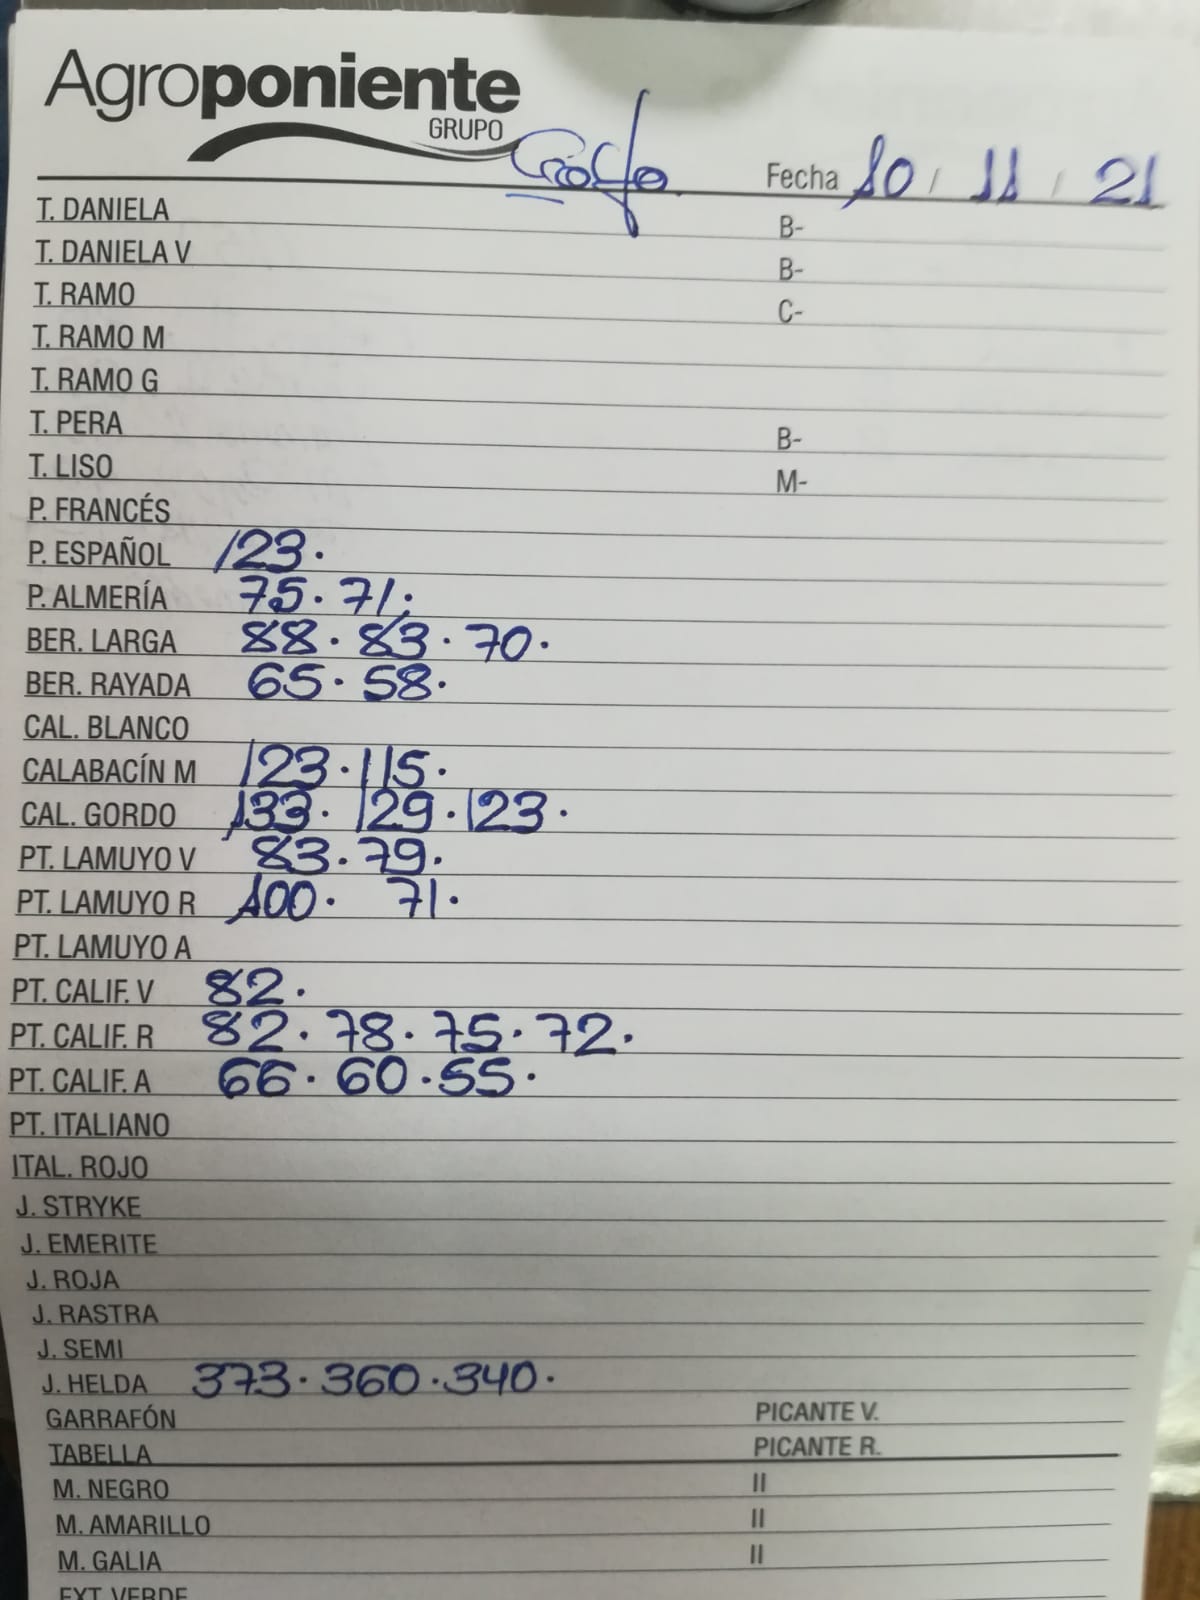 Agroponiente
GRUPO
Fecha 10 / 11 / 21
T. DANIELA B-
T. DANIELA V B-
T. RAMO C-
T. RAMO M
T. RAMO G
T. PERA B-
T. LISO M-
P. FRANCÉS
P. ESPAÑOL 123.
P. ALMERÍA 75. 71.
BER. LARGA 88. 83. 70.
BER. RAYADA 65. 58.
CAL. BLANCO
CALABACÍN M 123. 115.
CAL. GORDO 133. 129. 123.
PT. LAMUYO V 83. 79.
PT. LAMUYO R 100. 71.
PT. LAMUYO A
PT. CALIF. V 82.
PT. CALIF. R 82. 78. 75. 72.
PT. CALIF. A 66. 60. 55.
PT. ITALIANO
ITAL. ROJO
J. STRYKE
J. EMERITE
J. ROJA
J. RASTRA
J. SEMI
J. HELDA 373. 360. 340.
GARRAFÓN PICANTE V.
TABELLA PICANTE R.
M. NEGRO II
M. AMARILLO II
M. GALIA II
EXT. VERDE